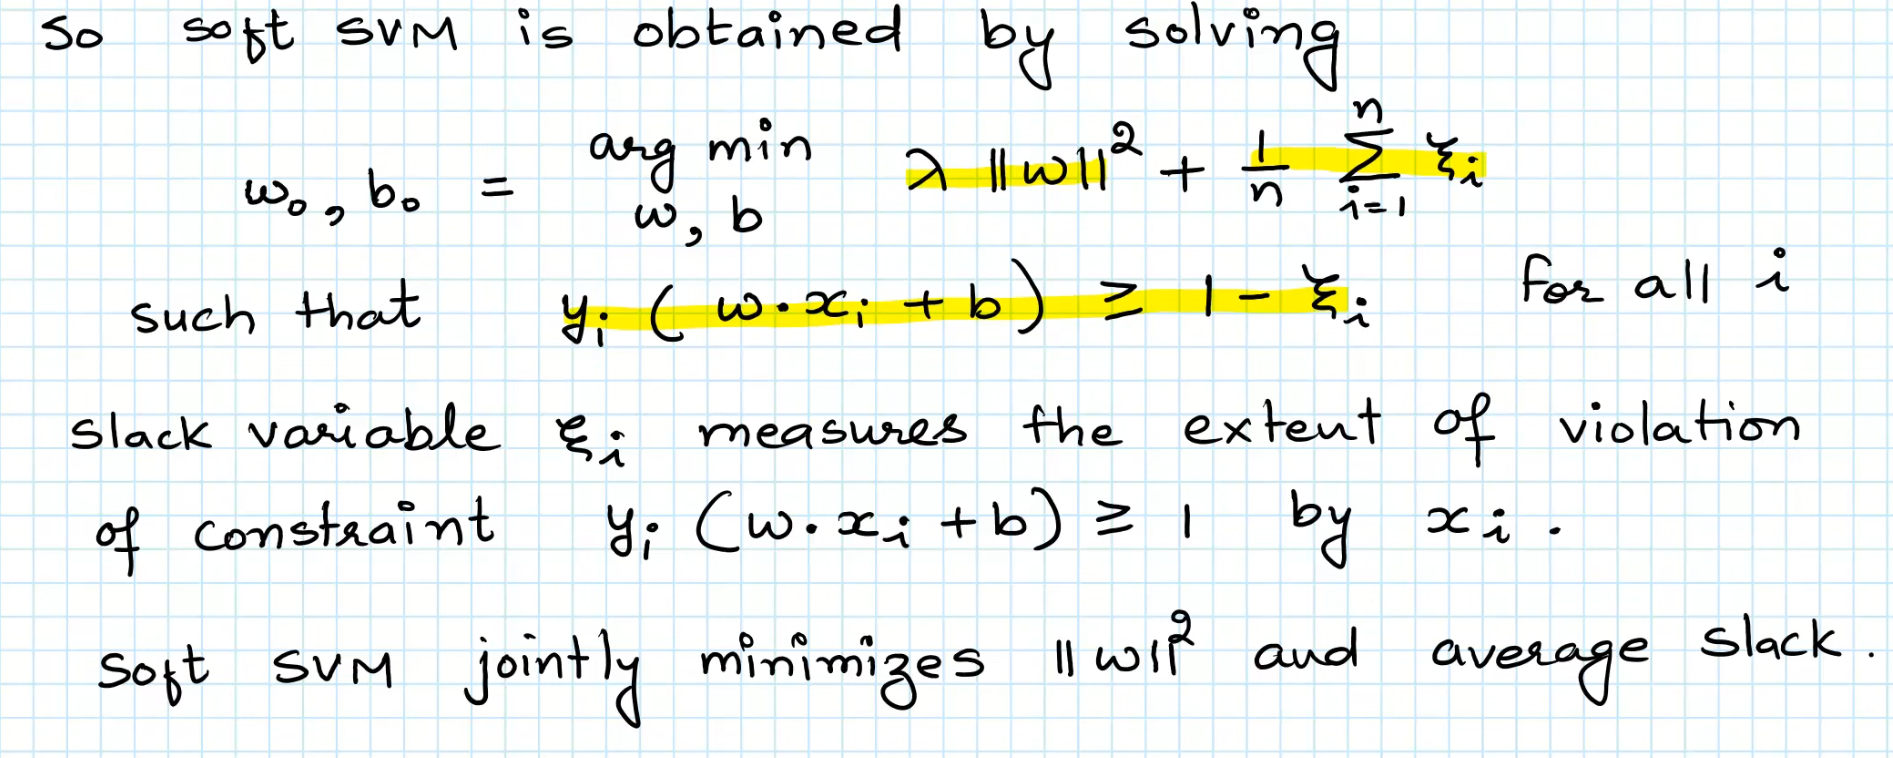 So soft SVM is obtained by solving
w₀, b₀ = arg min w, b λ ||w||² + 1/n Σ i=1 n ξᵢ
such that yᵢ (w·xᵢ + b) ≥ 1 - ξᵢ for all i
slack variable ξᵢ measures the extent of violation
of constraint yᵢ (w·xᵢ + b) ≥ 1 by xᵢ.
Soft SVM jointly minimizes ||w||² and average slack.